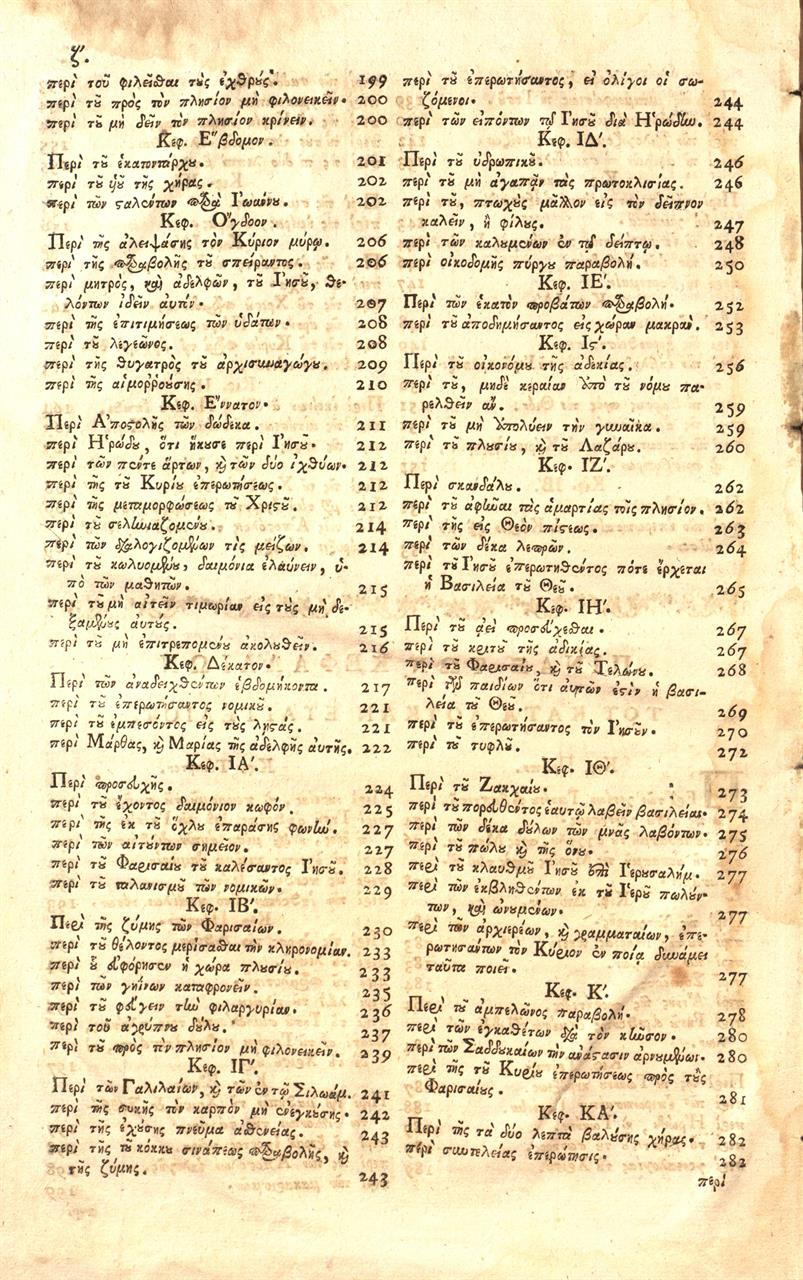 ζ'.
περὶ τοῦ φιλεῖσθαι τοὺς ἐχθρούς. 199
περὶ τοῦ πρὸς τὸν πλησίον μὴ φιλονεικεῖν. 200
περὶ τοῦ μὴ δεῖν τὸν πλησίον κρίνειν. 200
Κεφ. Ἕβδομον.
Περὶ τοῦ ἑκατοντάρχου. 201
περὶ τοῦ υἱοῦ τῆς χήρας. 202
περὶ τῶν σταλέντων παρὰ Ἰωάννου. 202
Κεφ. Ὄγδοον.
Περὶ τῆς ἀλειψάσης τὸν Κύριον μύρῳ. 206
περὶ τῆς παραβολῆς τοῦ σπείραντος. 206
περὶ μητρὸς, καὶ ἀδελφῶν, τοῦ Ἰησοῦ, θε-
λόντων ἰδεῖν αὐτόν. 207
περὶ τῆς ἐπιτιμήσεως τῶν ὑδάτων. 208
περὶ τοῦ λεγεῶνος. 208
περὶ τῆς θυγατρὸς τοῦ ἀρχισυναγώγου. 209
περὶ τῆς αἱμορροούσης. 210
Κεφ. Ἔννατον.
Περὶ Ἀποστολῆς τῶν δώδεκα. 211
περὶ Ἡρώδου, ὅτι ἤκουσε περὶ Ἰησοῦ. 212
περὶ τῶν πέντε ἄρτων, καὶ τῶν δύο ἰχθύων. 212
περὶ τῆς τοῦ Κυρίου ἐπερωτήσεως. 212
περὶ τῆς μεταμορφώσεως τοῦ Χριστοῦ. 212
περὶ τοῦ σεληνιαζομένου. 214
περὶ τῶν διαλογιζομένων τίς μείζων. 214
περὶ τοῦ κωλυομένου, δαιμόνια ἐλαύνειν, ὑ-
πὸ τῶν μαθητῶν. 215
περὶ τοῦ μὴ αἰτεῖν τιμωρίαν εἰς τοὺς μὴ δε-
ξαμένους αὐτούς. 215
περὶ τοῦ μὴ ἐπιτρεπομένου ἀκολουθεῖν. 216
Κεφ. Δέκατον.
Περὶ τῶν ἀναδειχθέντων ἑβδομήκοντα. 217
περὶ τοῦ ἐπερωτήσαντος νομικοῦ. 221
περὶ τοῦ ἐμπεσόντος εἰς τοὺς λῃστάς. 221
περὶ Μάρθας, καὶ Μαρίας τῆς ἀδελφῆς αὐτῆς. 222
Κεφ. ΙΑ'.
Περὶ προσευχῆς. 224
περὶ τοῦ ἔχοντος δαιμόνιον κωφόν. 225
περὶ τῆς ἐκ τοῦ ὄχλου ἐπαράσης φωνήν. 227
περὶ τῶν αἰτούντων σημεῖον. 227
περὶ τοῦ Φαρισαίου τοῦ καλέσαντος Ἰησοῦ. 228
περὶ τοῦ ταλανισμοῦ τῶν νομικῶν. 229
Κεφ. ΙΒ'.
Περὶ τῆς ζύμης τῶν Φαρισαίων. 230
περὶ τοῦ θέλοντος μερίσασθαι τὴν κληρονομίαν. 233
περὶ οὗ εὐφόρησεν ἡ χώρα πλουσίου. 233
περὶ τῶν γηίνων καταφρονεῖν. 235
περὶ τοῦ φεύγειν τὴν φιλαργυρίαν. 236
περὶ τοῦ ἀγρύπνου δούλου. 237
περὶ τοῦ πρὸς τὸν πλησίον μὴ φιλονεικεῖν. 239
Κεφ. ΙΓ'.
Περὶ τῶν Γαλιλαίων, καὶ τῶν ἐν τῷ Σιλωάμ. 241
περὶ τῆς συκῆς τὸν καρπὸν μὴ ἐνεγκούσης. 242
περὶ τῆς ἐχούσης πνεῦμα ἀσθενείας. 243
περὶ τῆς τοῦ κόκκου σινάπεως παραβολῆς, καὶ
τῆς ζύμης. 243
περὶ τοῦ ἐπερωτήσαντος, εἰ ὀλίγοι οἱ σω-
ζόμενοι. 244
περὶ τῶν εἰπόντων τῷ Ἰησοῦ διὰ Ἡρώδην. 244
Κεφ. ΙΔ'.
Περὶ τοῦ ὑδρωπικοῦ. 246
περὶ τοῦ μὴ ἀγαπᾷν τὰς πρωτοκλισίας. 246
περὶ τοῦ, πτωχοὺς μᾶλλον εἰς τὸν δεῖπνον
καλεῖν, ἢ φίλους. 247
περὶ τῶν καλουμένων ἐν τῷ δείπνῳ. 248
περὶ οἰκοδομῆς πύργου παραβολή. 250
Κεφ. ΙΕ'.
Περὶ τῶν ἑκατὸν προβάτων παραβολή. 252
περὶ τοῦ ἀποδημήσαντος εἰς χώραν μακράν. 253
Κεφ. Ιϛ'.
Περὶ τοῦ οἰκονόμου τῆς ἀδικίας. 256
περὶ τοῦ, μηδὲ κεραίαν ὑπὸ τοῦ νόμου πα-
ρελθεῖν ἄν. 259
περὶ τοῦ μὴ ἀπολύειν τὴν γυναῖκα. 259
περὶ τοῦ πλουσίου, καὶ τοῦ Λαζάρου. 260
Κεφ. ΙΖ'.
Περὶ σκανδάλου. 262
περὶ τοῦ ἀφιέναι τὰς ἁμαρτίας τοῖς πλησίον. 262
περὶ τῆς εἰς Θεὸν πίστεως. 263
περὶ τῶν δέκα λεπρῶν. 264
περὶ τοῦ Ἰησοῦ ἐπερωτηθέντος πότε ἔρχεται
ἡ Βασιλεία τοῦ Θεοῦ. 265
Κεφ. ΙΗ'.
Περὶ τοῦ ἀεὶ προσεύχεσθαι. 267
περὶ τοῦ κριτοῦ τῆς ἀδικίας. 267
περὶ τοῦ Φαρισαίου, καὶ τοῦ Τελώνου. 268
περὶ τῶν παιδίων ὅτι αὐτῶν ἐστὶν ἡ βασι-
λεία τοῦ Θεοῦ. 269
περὶ τοῦ ἐπερωτήσαντος τὸν Ἰησοῦν. 270
περὶ τοῦ τυφλοῦ. 272
Κεφ. ΙΘ'.
Περὶ τοῦ Ζακχαίου. 273
περὶ τοῦ πορευθέντος ἑαυτῷ λαβεῖν βασιλείαν. 274
περὶ τῶν δέκα δούλων τῶν μνᾶς λαβόντων. 275
περὶ τοῦ πώλου καὶ τῆς ὄνου. 276
περὶ τοῦ κλαυθμοῦ Ἰησοῦ ἐπὶ Ἱερουσαλήμ. 277
περὶ τῶν ἐκβληθέντων ἐκ τοῦ Ἱεροῦ πωλούν-
των, καὶ ὠνουμένων. 277
περὶ τῶν ἀρχιερέων, καὶ γραμματαίων, ἐπε-
ρωτησάντων τὸν Κύριον ἐν ποίᾳ δυνάμει
ταῦτα ποιεῖ. 277
Κεφ. Κ'.
Περὶ τοῦ ἀμπελῶνος παραβολή. 278
περὶ τῶν ἐγκαθέτων διὰ τὸν κῆνσον. 280
περὶ τῶν Σαδδουκαίων τὴν ἀνάστασιν ἀρνουμένων. 280
περὶ τῆς τοῦ Κυρίου ἐπερωτήσεως πρὸς τοὺς
Φαρισαίους. 281
Κεφ. ΚΑ'.
Περὶ τῆς τὰ δύο λεπτὰ βαλούσης χήρας. 282
περὶ συντελείας ἐπερώτησις. 282
περὶ